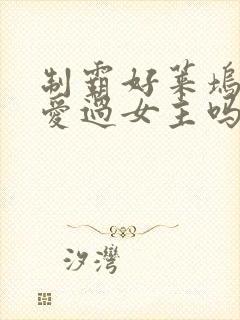 制霸好莱坞
爱过女主吗
汐湾